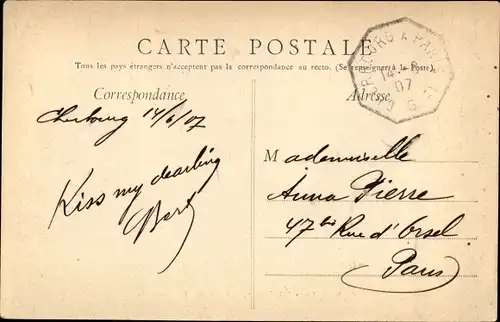 CARTE POSTALE
Tous les pays étrangers n'acceptent pas la correspondance au recto. (Se renseigner à la Poste).
Correspondance
Adresse
CHERBOURG A PARIS
14-6
07
Cherbourg 14/6/07
Kiss my dearling
Bert
Mademoiselle
Anna Pierre
47bis Rue d'Orsel
Paris